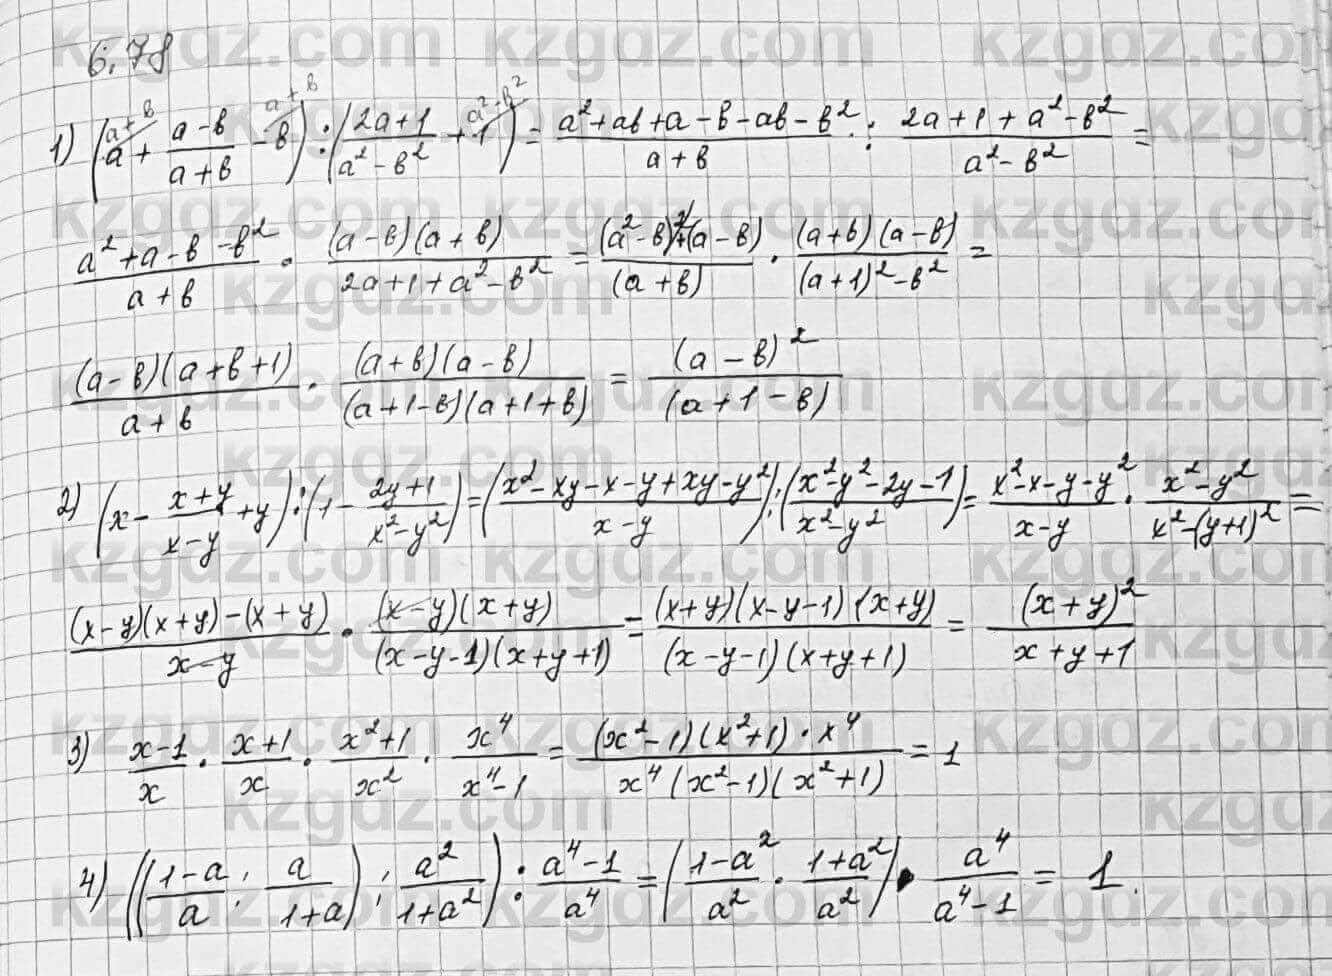 6.78
1) (a + \frac{a-b}{a+b} - b) : (\frac{2a+1}{a^2-b^2} + 1) = \frac{a^2+ab+a-b-ab-b^2}{a+b} : \frac{2a+1+a^2-b^2}{a^2-b^2} =
\frac{a^2+a-b-b^2}{a+b} \cdot \frac{(a-b)(a+b)}{2a+1+a^2-b^2} = \frac{(a^2-b)^2+(a-b)}{(a+b)} \cdot \frac{(a+b)(a-b)}{(a+1)^2-b^2} =
\frac{(a-b)(a+b+1)}{a+b} \cdot \frac{(a+b)(a-b)}{(a+1-b)(a+1+b)} = \frac{(a-b)^2}{(a+1-b)}
2) (x - \frac{x+y}{x-y} + y) : (1 - \frac{2y+1}{x^2-y^2}) = (\frac{x^2-xy-x-y+xy-y^2}{x-y}) : (\frac{x^2-y^2-2y-1}{x^2-y^2}) = \frac{x^2-x-y-y^2}{x-y} \cdot \frac{x^2-y^2}{x^2-(y+1)^2} =
\frac{(x-y)(x+y)-(x+y)}{x-y} \cdot \frac{(x-y)(x+y)}{(x-y-1)(x+y+1)} = \frac{(x+y)(x-y-1)(x+y)}{(x-y-1)(x+y+1)} = \frac{(x+y)^2}{x+y+1}
3) \frac{x-1}{x} \cdot \frac{x+1}{x} \cdot \frac{x^2+1}{x^2} \cdot \frac{x^4}{x^4-1} = \frac{(x^2-1)(x^2+1) \cdot x^4}{x^4(x^2-1)(x^2+1)} = 1
4) ((\frac{1-a}{a} : \frac{a}{1+a}) : \frac{a^2}{1+a^2}) : \frac{a^4-1}{a^4} = (\frac{1-a^2}{a^2} \cdot \frac{1+a^2}{a^2}) \cdot \frac{a^4}{a^4-1} = 1.
kzgdz.com